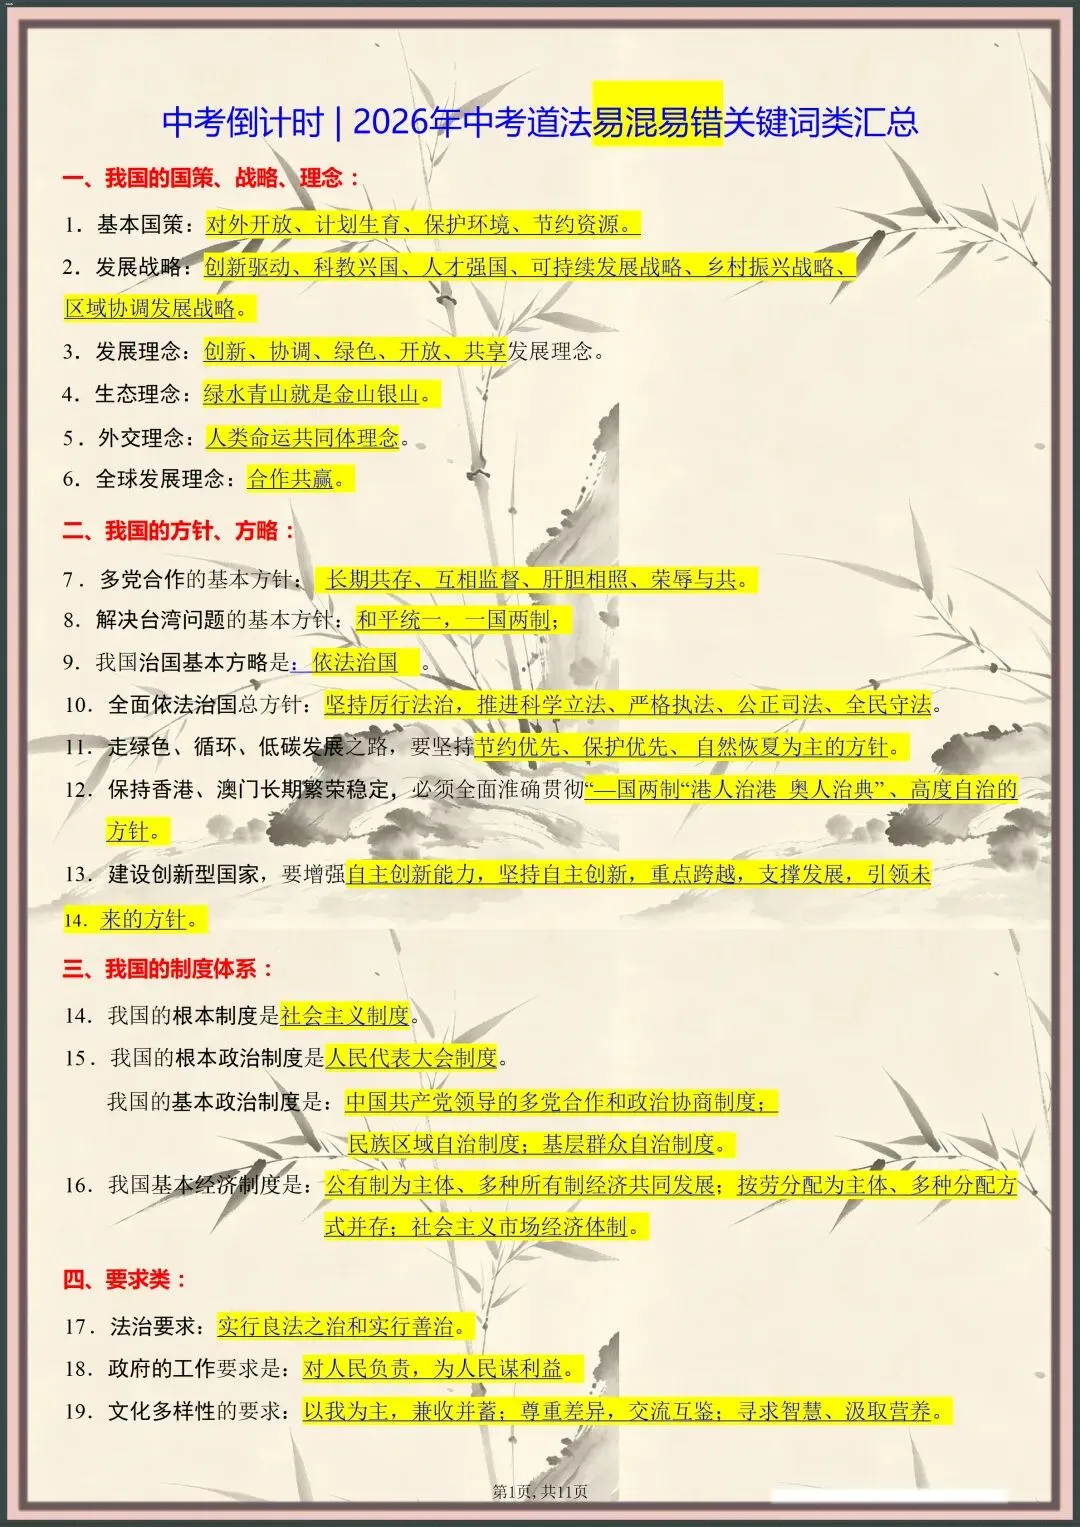 中考倒计时 | 2026年中考道法易混易错关键词类汇总
一、我国的国策、战略、理念：
1．基本国策：对外开放、计划生育、保护环境、节约资源。
2．发展战略：创新驱动、科教兴国、人才强国、可持续发展战略、乡村振兴战略、
区域协调发展战略。
3．发展理念：创新、协调、绿色、开放、共享发展理念。
4．生态理念：绿水青山就是金山银山。
5．外交理念：人类命运共同体理念。
6．全球发展理念：合作共赢。
二、我国的方针、方略：
7．多党合作的基本方针： 长期共存、互相监督、肝胆相照、荣辱与共。
8．解决台湾问题的基本方针：和平统一，一国两制；
9．我国治国基本方略是：依法治国 。
10．全面依法治国总方针：坚持厉行法治，推进科学立法、严格执法、公正司法、全民守法。
11．走绿色、循环、低碳发展之路，要坚持节约优先、保护优先、 自然恢夏为主的方针。
12．保持香港、澳门长期繁荣稳定，必须全面淮确贯彻“—国两制“港人治港 奥人治典”、高度自治的
方针。
13．建设创新型国家，要增强自主创新能力，坚持自主创新，重点跨越，支撑发展，引领未
14．来的方针。
三、我国的制度体系：
14．我国的根本制度是社会主义制度。
15．我国的根本政治制度是人民代表大会制度。
我国的基本政治制度是：中国共产党领导的多党合作和政治协商制度；
民族区域自治制度；基层群众自治制度。
16．我国基本经济制度是：公有制为主体、多种所有制经济共同发展；按劳分配为主体、多种分配方
式并存；社会主义市场经济体制。
四、要求类：
17．法治要求：实行良法之治和实行善治。
18．政府的工作要求是：对人民负责，为人民谋利益。
19．文化多样性的要求：以我为主，兼收并蓄；尊重差异，交流互鉴；寻求智慧、汲取营养。
第1页, 共11页